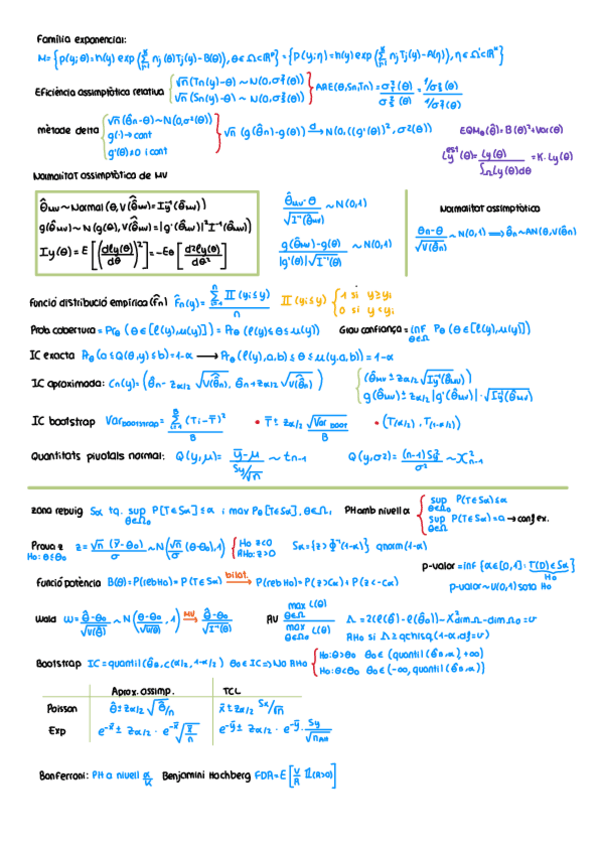 Família exponencial:
M = {p(y;θ) = h(y) exp(Σ ηj(θ)Tj(y) - B(θ)), θ∈Ω⊂ℝᵏ} = {p(y;η) = h(y) exp(Σ ηjTj(y) - A(η)), η∈Ω'⊂ℝᵏ}
Eficiència assimptòtica relativa { √n(Tn(y)-θ) ~ N(0,σ²T(θ)) √n(Sn(y)-θ) ~ N(0,σ²S(θ)) } ARE(θ,Sn,Tn) = σ²T(θ)/σ²S(θ) = 1/σ²S(θ) / 1/σ²T(θ)
mètode delta { √n(θ̂n-θ) ~ N(0,σ²(θ)) g(·) → cont g'(θ)≠0 i cont } √n(g(θ̂n)-g(θ)) →d N(0,(g'(θ))², σ²(θ)) EQMθ(θ̂) = B(θ)²+Var(θ)
Ly^est(θ) = Ly(θ)/∫Ω Ly(θ)dθ = K·Ly(θ)
Normalitat assimptòtica de MV
θ̂MV ~ Normal(θ, V(θ̂MV) = Iy⁻¹(θ̂MV))
g(θ̂MV) ~ N(g(θ), V(θ̂MV) = |g'(θ̂MV)|² I⁻¹(θ̂MV))
Iy(θ) = E[(dly(θ)/dθ)²] = -Eθ[d²ly(θ)/dθ²]
θ̂MV-θ/√I⁻¹(θ̂MV) ~ N(0,1)
g(θ̂MV)-g(θ)/|g'(θ)|√I⁻¹(θ̂MV) ~ N(0,1)
Normalitat assimptòtica
θ̂n-θ/√V(θ̂n) ~ N(0,1) ⟹ θ̂n ~ AN(θ,V(θ̂n))
Funció distribució empírica (F̂n) F̂n(y) = Σ 𝕀(yi≤y)/n 𝕀(yi≤y) { 1 si y≥yi 0 si y<yi
Prob cobertura = Prθ(θ∈[l(y),μ(y)]) = Prθ(l(y)≤θ≤μ(y)) Grau confiança = inf θ∈Ω Pθ(θ∈[l(y),μ(y)])
IC exacta Prθ(a≤Q(θ,y)≤b) = 1-α ⟶ Prθ(l(y),a,b)≤θ≤μ(y,a,b)) = 1-α
IC aproximada: Cn(y) = (θ̂n - zα/2 √V(θ̂n), θ̂n + zα/2 √V(θ̂n)) { (θ̂MV ± zα/2 √Iy⁻¹(θ̂MV)) g(θ̂MV) ± zα/2 |g'(θ̂MV)|·√Iy⁻¹(θ̂MV)
IC bootstrap Var bootstrap = Σ (Ti-T̄)²/B • T̄ ± zα/2 √Var boot/B • (T(α/2), T(1-α/2))
Quantitats pivotals normal: Q(y,μ) = ȳ-μ/Sy/√n ~ tn-1 Q(y,σ²) = (n-1)Sy²/σ² ~ χ²n-1
zona rebuig Sα tq. sup θ∈Ω0 P[T∈Sα] ≤ α i max Pθ[T∈Sα], θ∈Ω1 PH amb nivell α { sup θ∈Ω0 P(T∈Sα)≤α sup θ∈Ω0 P(T∈Sα)=α → conf ex.
Prova z z = √n(ȳ-θ0)/σ ~ N(√n/σ(θ-θ0),1) { H0 z<0 RH0: z>0 Sα = {z>Φ⁻¹(1-α)} qnorm(1-α)
H0: θ≤θ0
p-valor = inf{α∈[0,1]: T(D)∈Sα}
H0
Funció potència B(θ) = P(reb H0) = P(T∈Sα) bilat.→ P(reb H0) = P(z>Cα) + P(z<-Cα) p-valor ~ U(0,1) sota H0
Wald W = θ̂-θ0/√V(θ̂) ~ N(θ-θ0/√V(θ), 1) MV→ θ̂-θ0/√I⁻¹(θ̂) RV max θ∈Ω L(θ)/max θ∈Ω0 L(θ) Λ = 2(l(θ̂)-l(θ̂0)) ~ χ²dimΩ-dimΩ0 = υ
RH0 si Λ≥qchisq(1-α,df=υ)
Bootstrap IC = quantil(θ̂B,c(α/2,1-α/2)) θ0∈IC ⟹ No RH0 { H0: θ>θ0 θ0∈(quantil(θ̂B,α),+∞) H0: θ<θ0 θ0∈(-∞,quantil(θ̂B,α))
Aprox. assimp. TCL
Poisson θ̂ ± zα/2 √θ̂/n x̄ ± zα/2 Sx/√n
Exp e^-x̄ ± zα/2 · e^-x̄ √x̄/n e^-ȳ ± zα/2 · e^-ȳ · Sy/√n
Bonferroni: PH a nivell α/k Benjamini Hochberg FDR = E[V/R 𝟙(R>0)]